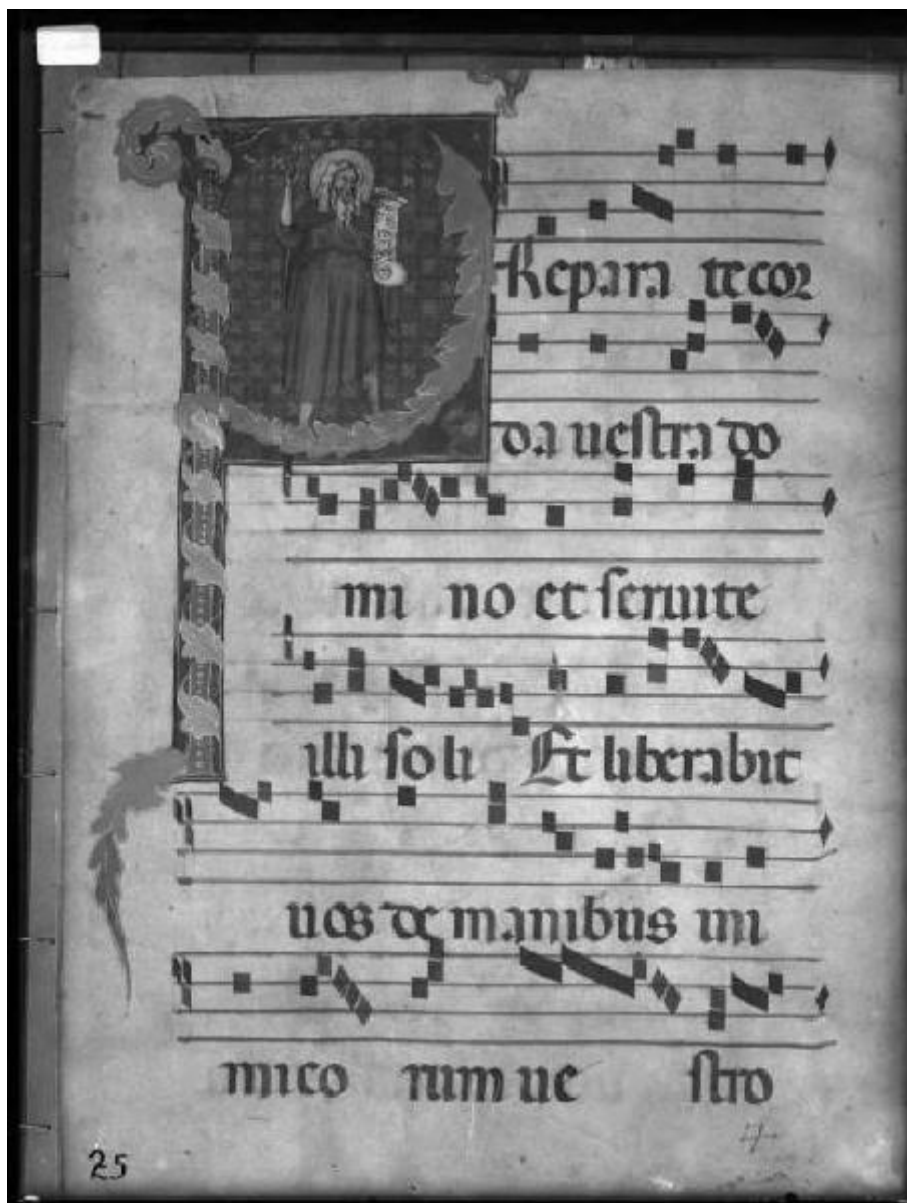 PRepara te cor
da uestra do
mi no et seruite
illi soli Et liberabit
uos de manibus ini
mico rum ue stro
25